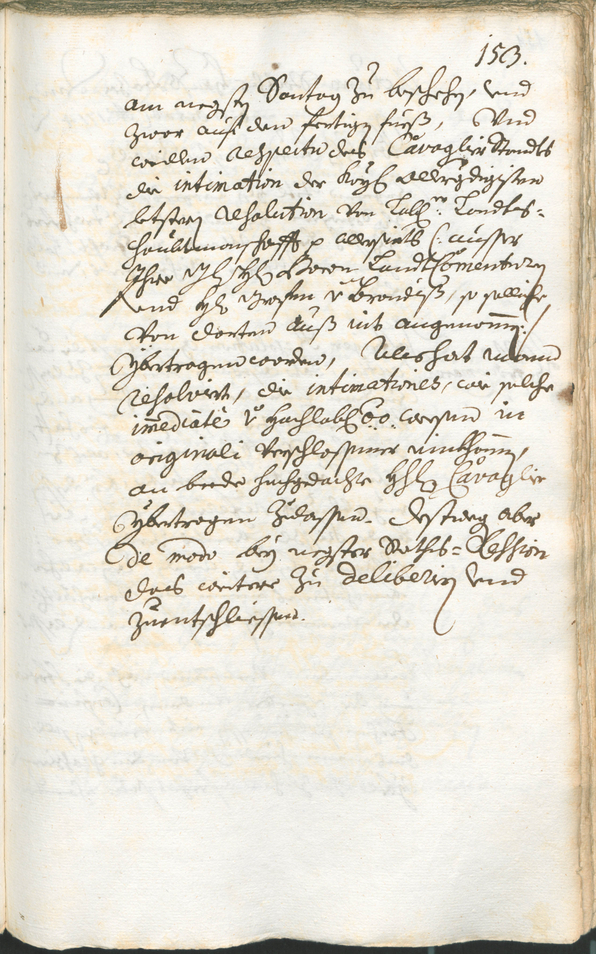 153.
am negsten Sontag zu beschehen, vnd
zwar auf den fertigen fueß, Vnd
weillen respectu des Cavaglier Standts
die intimation der Kays. allergdigisten
letstern resolution von Lobl. Landts=
haubtmanschafft p allerseits (: ausser
Ihr
vnd Grafen v Brandiß, so solliche
von dorten auß nit angenommen :/
ybertragen worden, Alß hat mann
resolviert, die intimationes, wie solche
immediatè v Hochlobl: o:ö: weesen in
originali verschlossner einkhommen,
an beede hochgedachte Cavaglier
ybertragen zulassen. Destweg aber
de modo bey negster Raths= Session
das weitere zu deliberiern vnd
zuentschliessen.